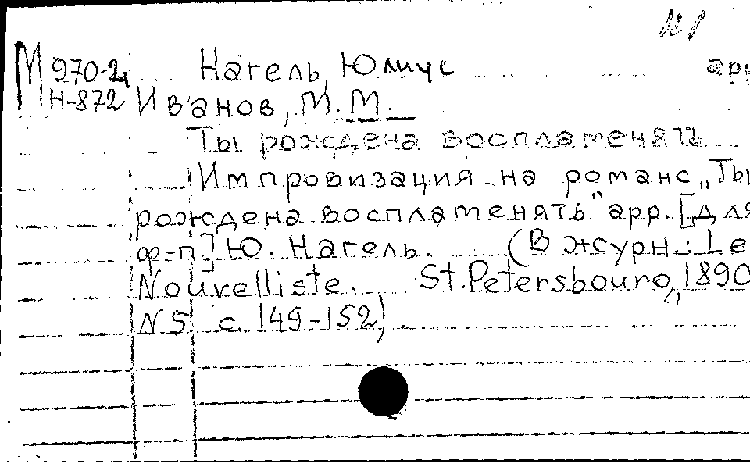 М 970-2 Нагель, Юлиус арр
Н-872 Иванов, М. М.
Ты рождена воспламенять
Импровизация на романс „Ты
рождена воспламенять" арр. [для
ф-п] Ю. Нагель. (В журн.: Le
Nouvelliste. St. Petersbourg, 1890
N 5 с. 149-152)